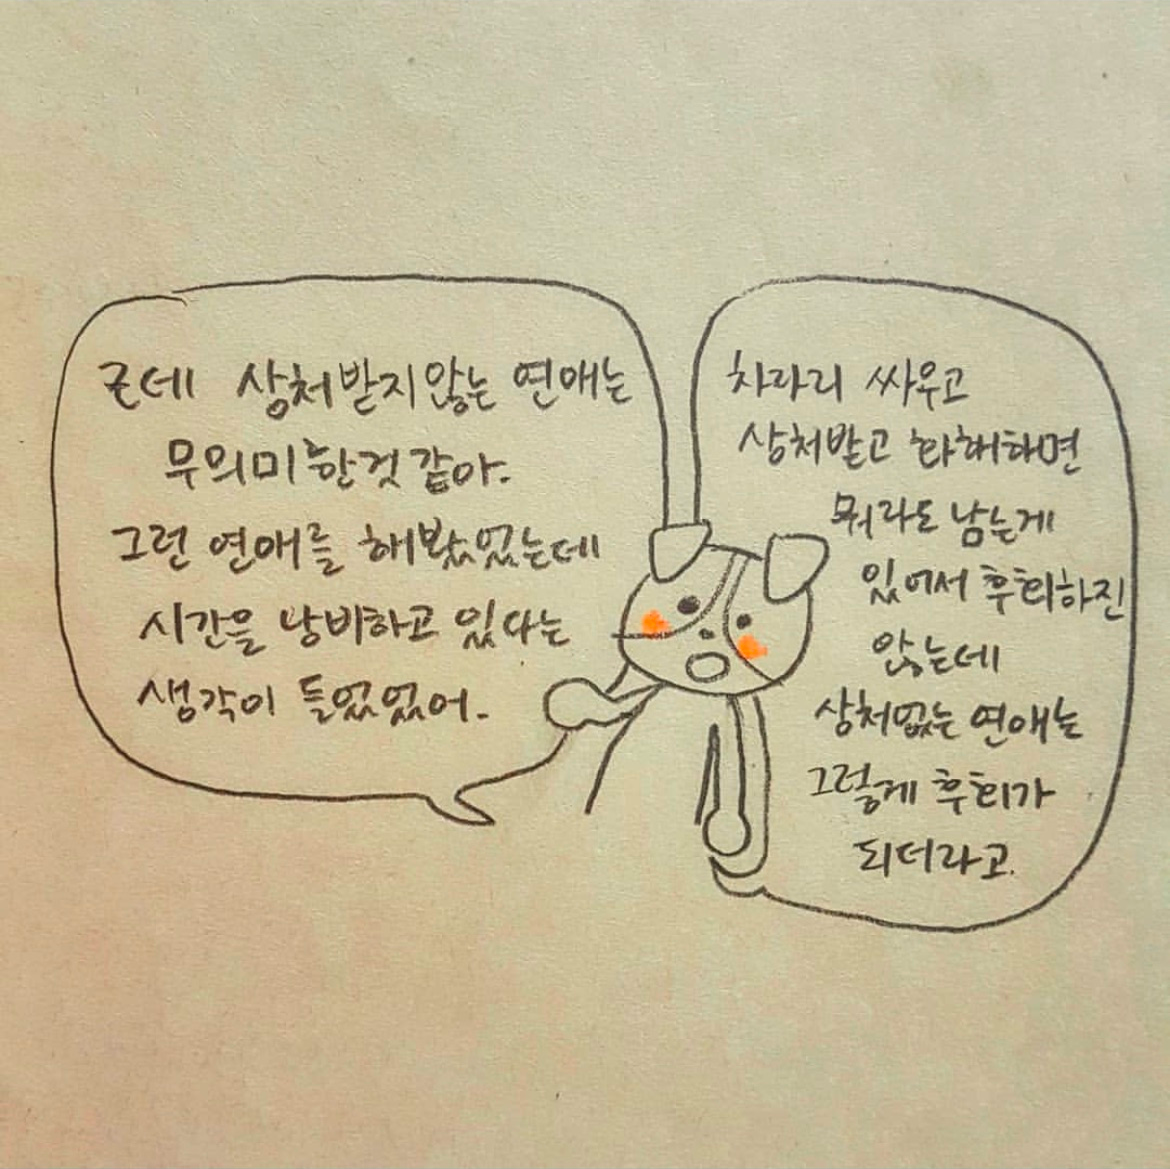 근데 상처받지않는 연애는
무의미한것 같아.
그런 연애를 해봤었는데
시간을 낭비하고 있다는
생각이 들었었어.
차라리 싸우고
상처받고 화해하면
뭐라도 남는게
있어서 후회하진
않는데
상처없는 연애는
그렇게 후회가
되더라고.